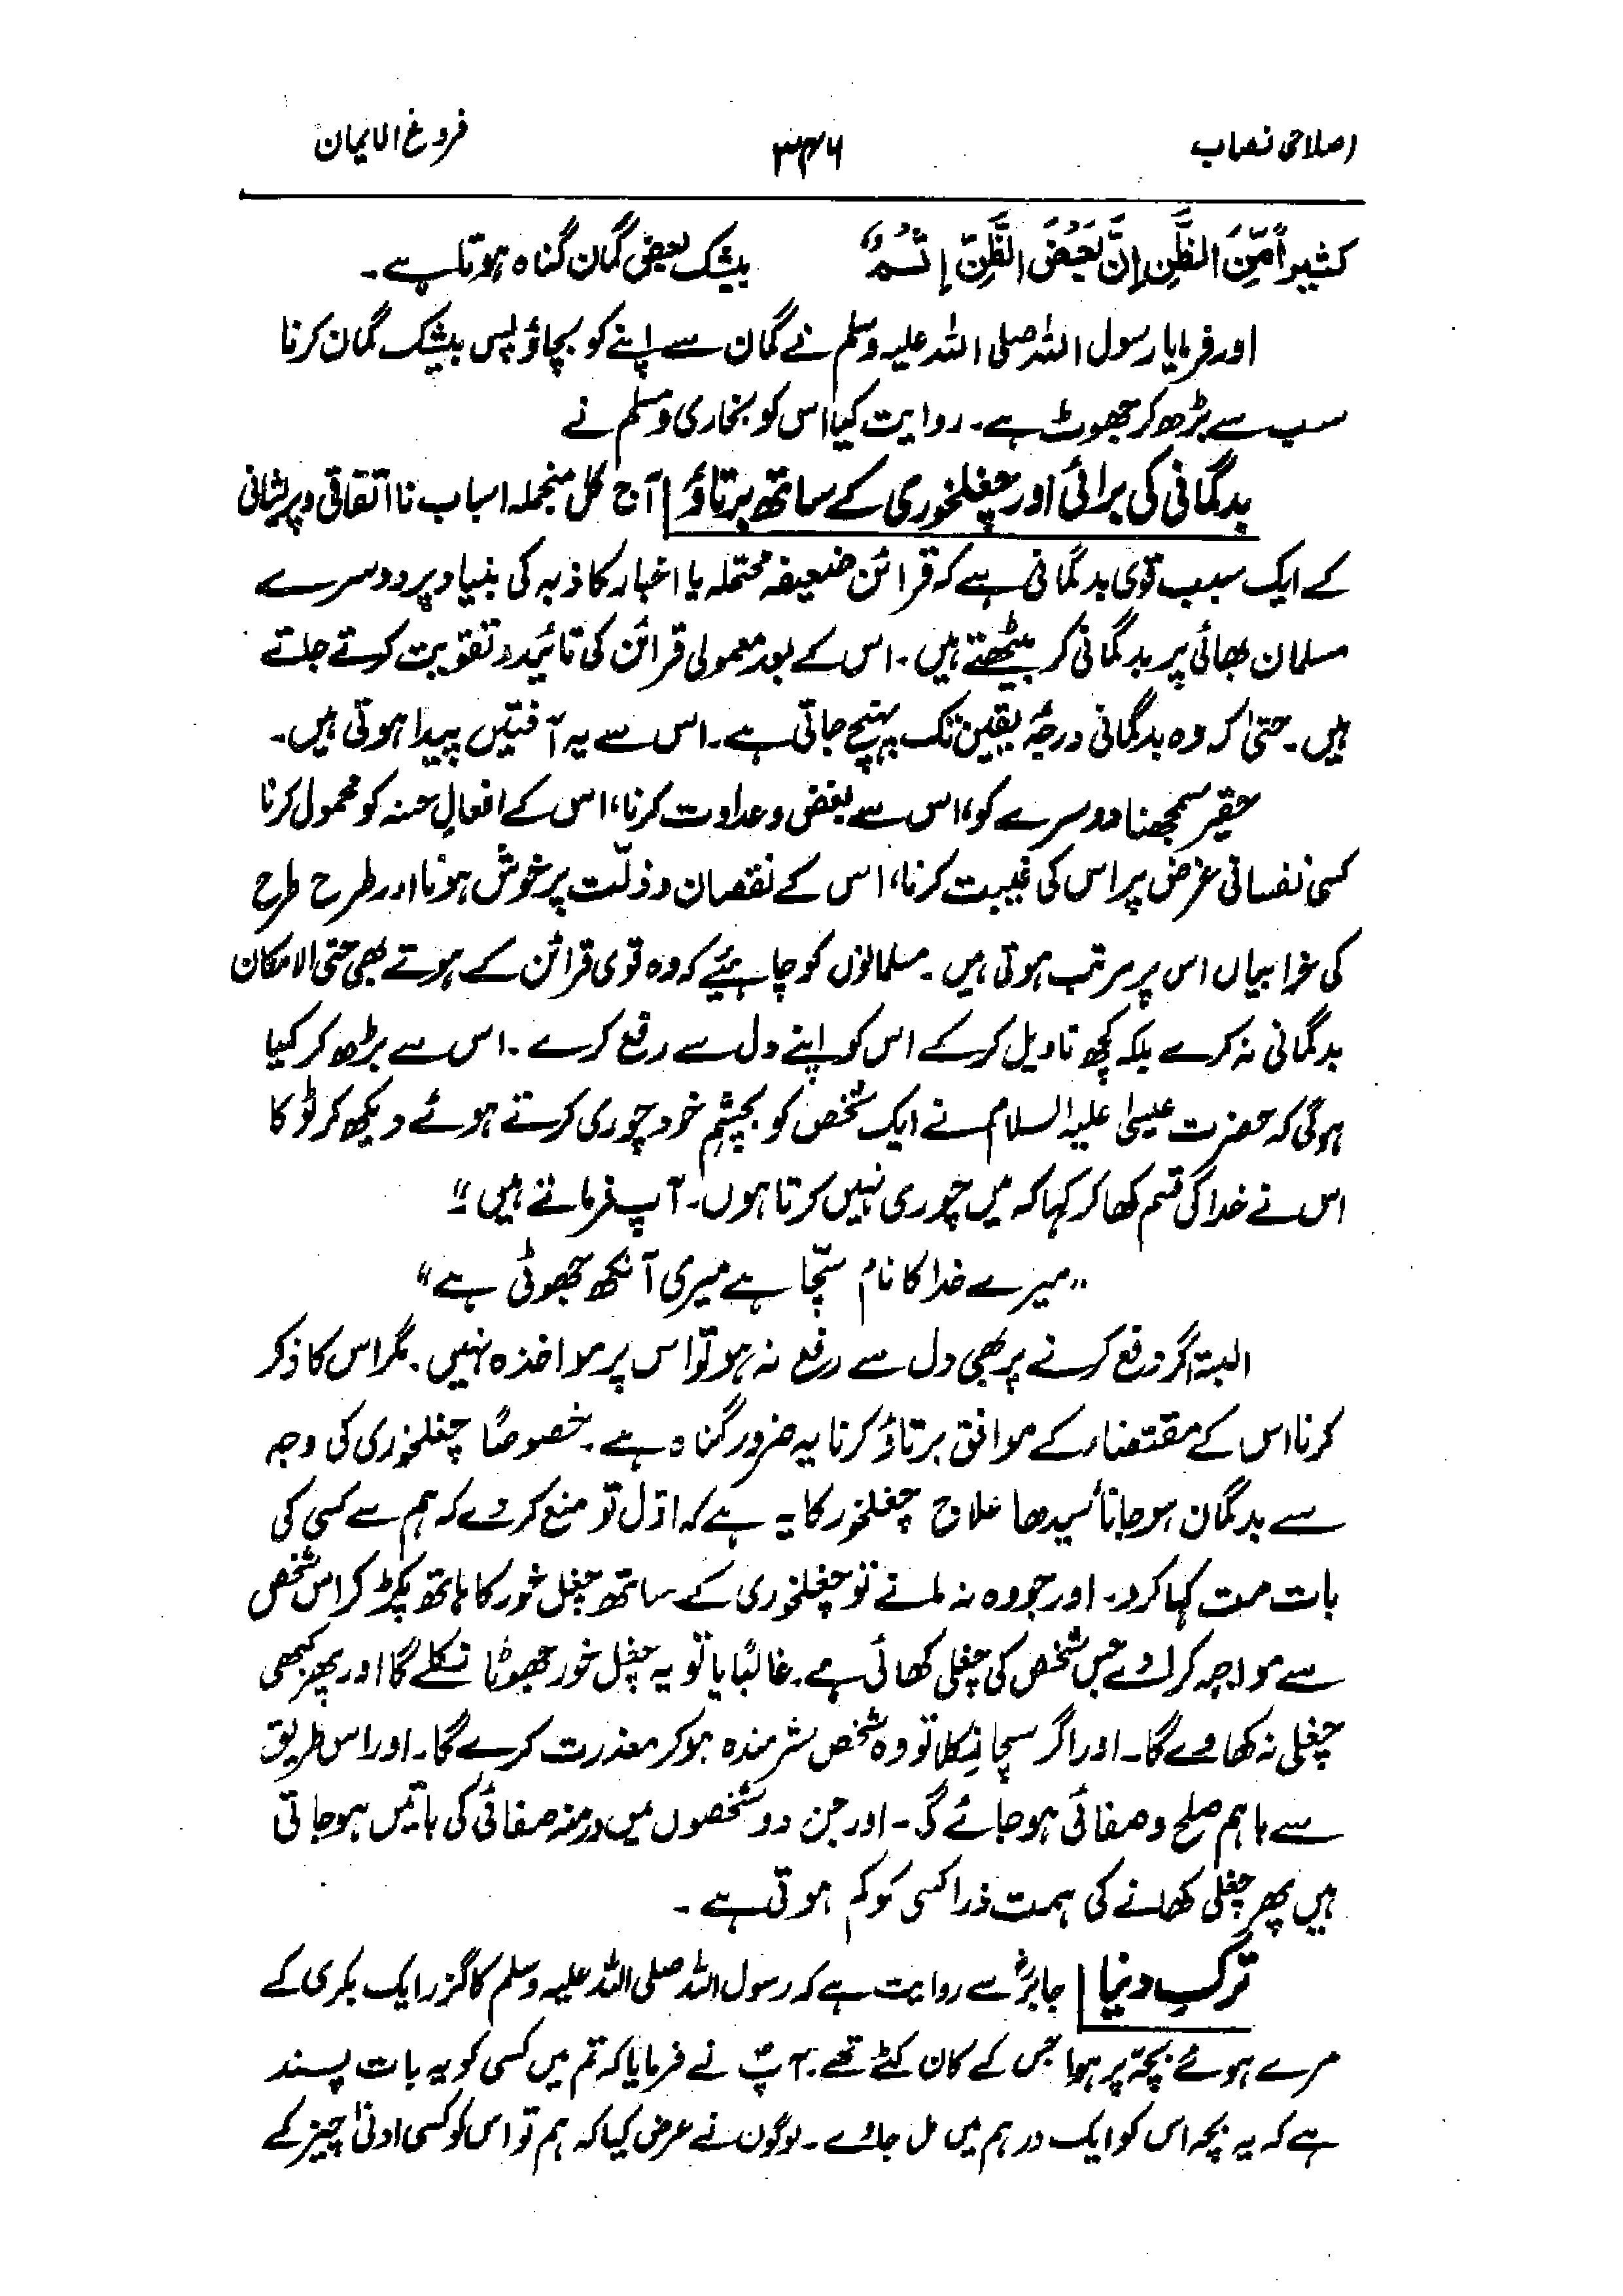 اصلاحی نصاب ۳۴۶ فروغ الایمان
كَثِيراً مِّنَ الظَّنِّ إِنَّ بَعْضَ الظَّنِّ إِثْمٌ بیشک بعض گمان گناہ ہوتا ہے۔
اور فرمایا رسول اللہ صلی اللہ علیہ وسلم نے گمان سے اپنے کو بچاؤ پس بیشک گمان کرنا
سب سے بڑھ کر جھوٹ ہے۔ روایت کیا اس کو بخاری و مسلم نے
بدگمانی کی برائی اور چغلخوری کے ساتھ برتاؤ آج کل منجملہ اسباب نااتفاقی و پریشانی
کے ایک سبب قوی بدگمانی ہے کہ قرائن ضعیفہ محتملہ یا اخبار کاذبہ کی بنیاد پر دوسرے
مسلمان بھائی پر بدگمانی کر بیٹھتے ہیں۔ اس کے بعد معمولی قرائن کی تائید و تقویت کرتے جاتے
ہیں۔ حتیٰ کہ وہ بدگمانی درجۂ یقین تک پہنچ جاتی ہے۔ اس سے یہ آفتیں پیدا ہوتی ہیں۔
حقیر سمجھنا دوسرے کو، اس سے بغض و عداوت کرنا، اس کے افعالِ حسنہ کو محمول کرنا
کسی نفسانی غرض پر اس کی غیبت کرنا، اس کے نقصان و ذلّت پر خوش ہونا اور طرح طرح
کی خرابیاں اس پر مرتب ہوتی ہیں۔ مسلمانوں کو چاہئیے کہ وہ قوی قرائن کے ہوتے بھی حتی الامکان
بدگمانی نہ کرے بلکہ کچھ تاویل کرکے اس کو اپنے دل سے رفع کرے۔ اس سے بڑھ کر کیا
ہوگی کہ حضرت عیسیٰ علیہ السلام نے ایک شخص کو بچشمِ خود چوری کرتے ہوئے دیکھ کر ٹوکا
اس نے خدا کی قسم کھا کر کہا کہ میں چوری نہیں کرتا ہوں۔ آپ فرماتے ہیں "
"میرے خدا کا نام سچّا ہے میری آنکھ جھوٹی ہے"
البتہ اگر رفع کرنے پر بھی دل سے رفع نہ ہو تو اس پر مواخذہ نہیں۔ مگر اس کا ذکر
کرنا اس کے مقتضاء کے موافق برتاؤ کرنا یہ ضرور گناہ ہے۔ خصوصًا چغلخوری کی وجہ
سے بدگمان ہوجانا سیدھا علاج چغلخور کا یہ ہے کہ اوّل تو منع کردے کہ ہم سے کسی کی
بات مت کہا کرو۔ اور جو وہ نہ مانے تو چغلخوری کے ساتھ چغل خور کا ہاتھ پکڑ کر اس شخص
سے مواجہ کرا دے جس شخص کی چغلی کھائی ہے۔ غالبًا یا تو یہ چغل خور جھوٹا نکلے گا اور پھر کبھی
چغلی نہ کھاوے گا۔ اور اگر سچا نکلا تو وہ شخص شرمندہ ہوکر معذرت کرے گا۔ اور اس طریق
سے باہم صلح و صفائی ہوجائے گی۔ اور جن دو شخصوں میں در منہ صفائی کی باتیں ہوجاتی
ہیں پھر چغلی کھانے کی ہمت ذرا کسی کو کم ہوتی ہے۔
ترکِ دنیا جابرؓ سے روایت ہے کہ رسول اللہ صلی اللہ علیہ وسلم کا گزر ایک بکری کے
مرے ہوئے بچّہ پر ہوا جس کے کان کٹے تھے۔ آپؐ نے فرمایا کہ تم میں کسی کو یہ بات پسند
ہے کہ یہ بچہ اس کو ایک درہم میں مل جاوے۔ لوگوں نے عرض کیا کہ ہم تو اس کو کسی ادنیٰ چیز کے